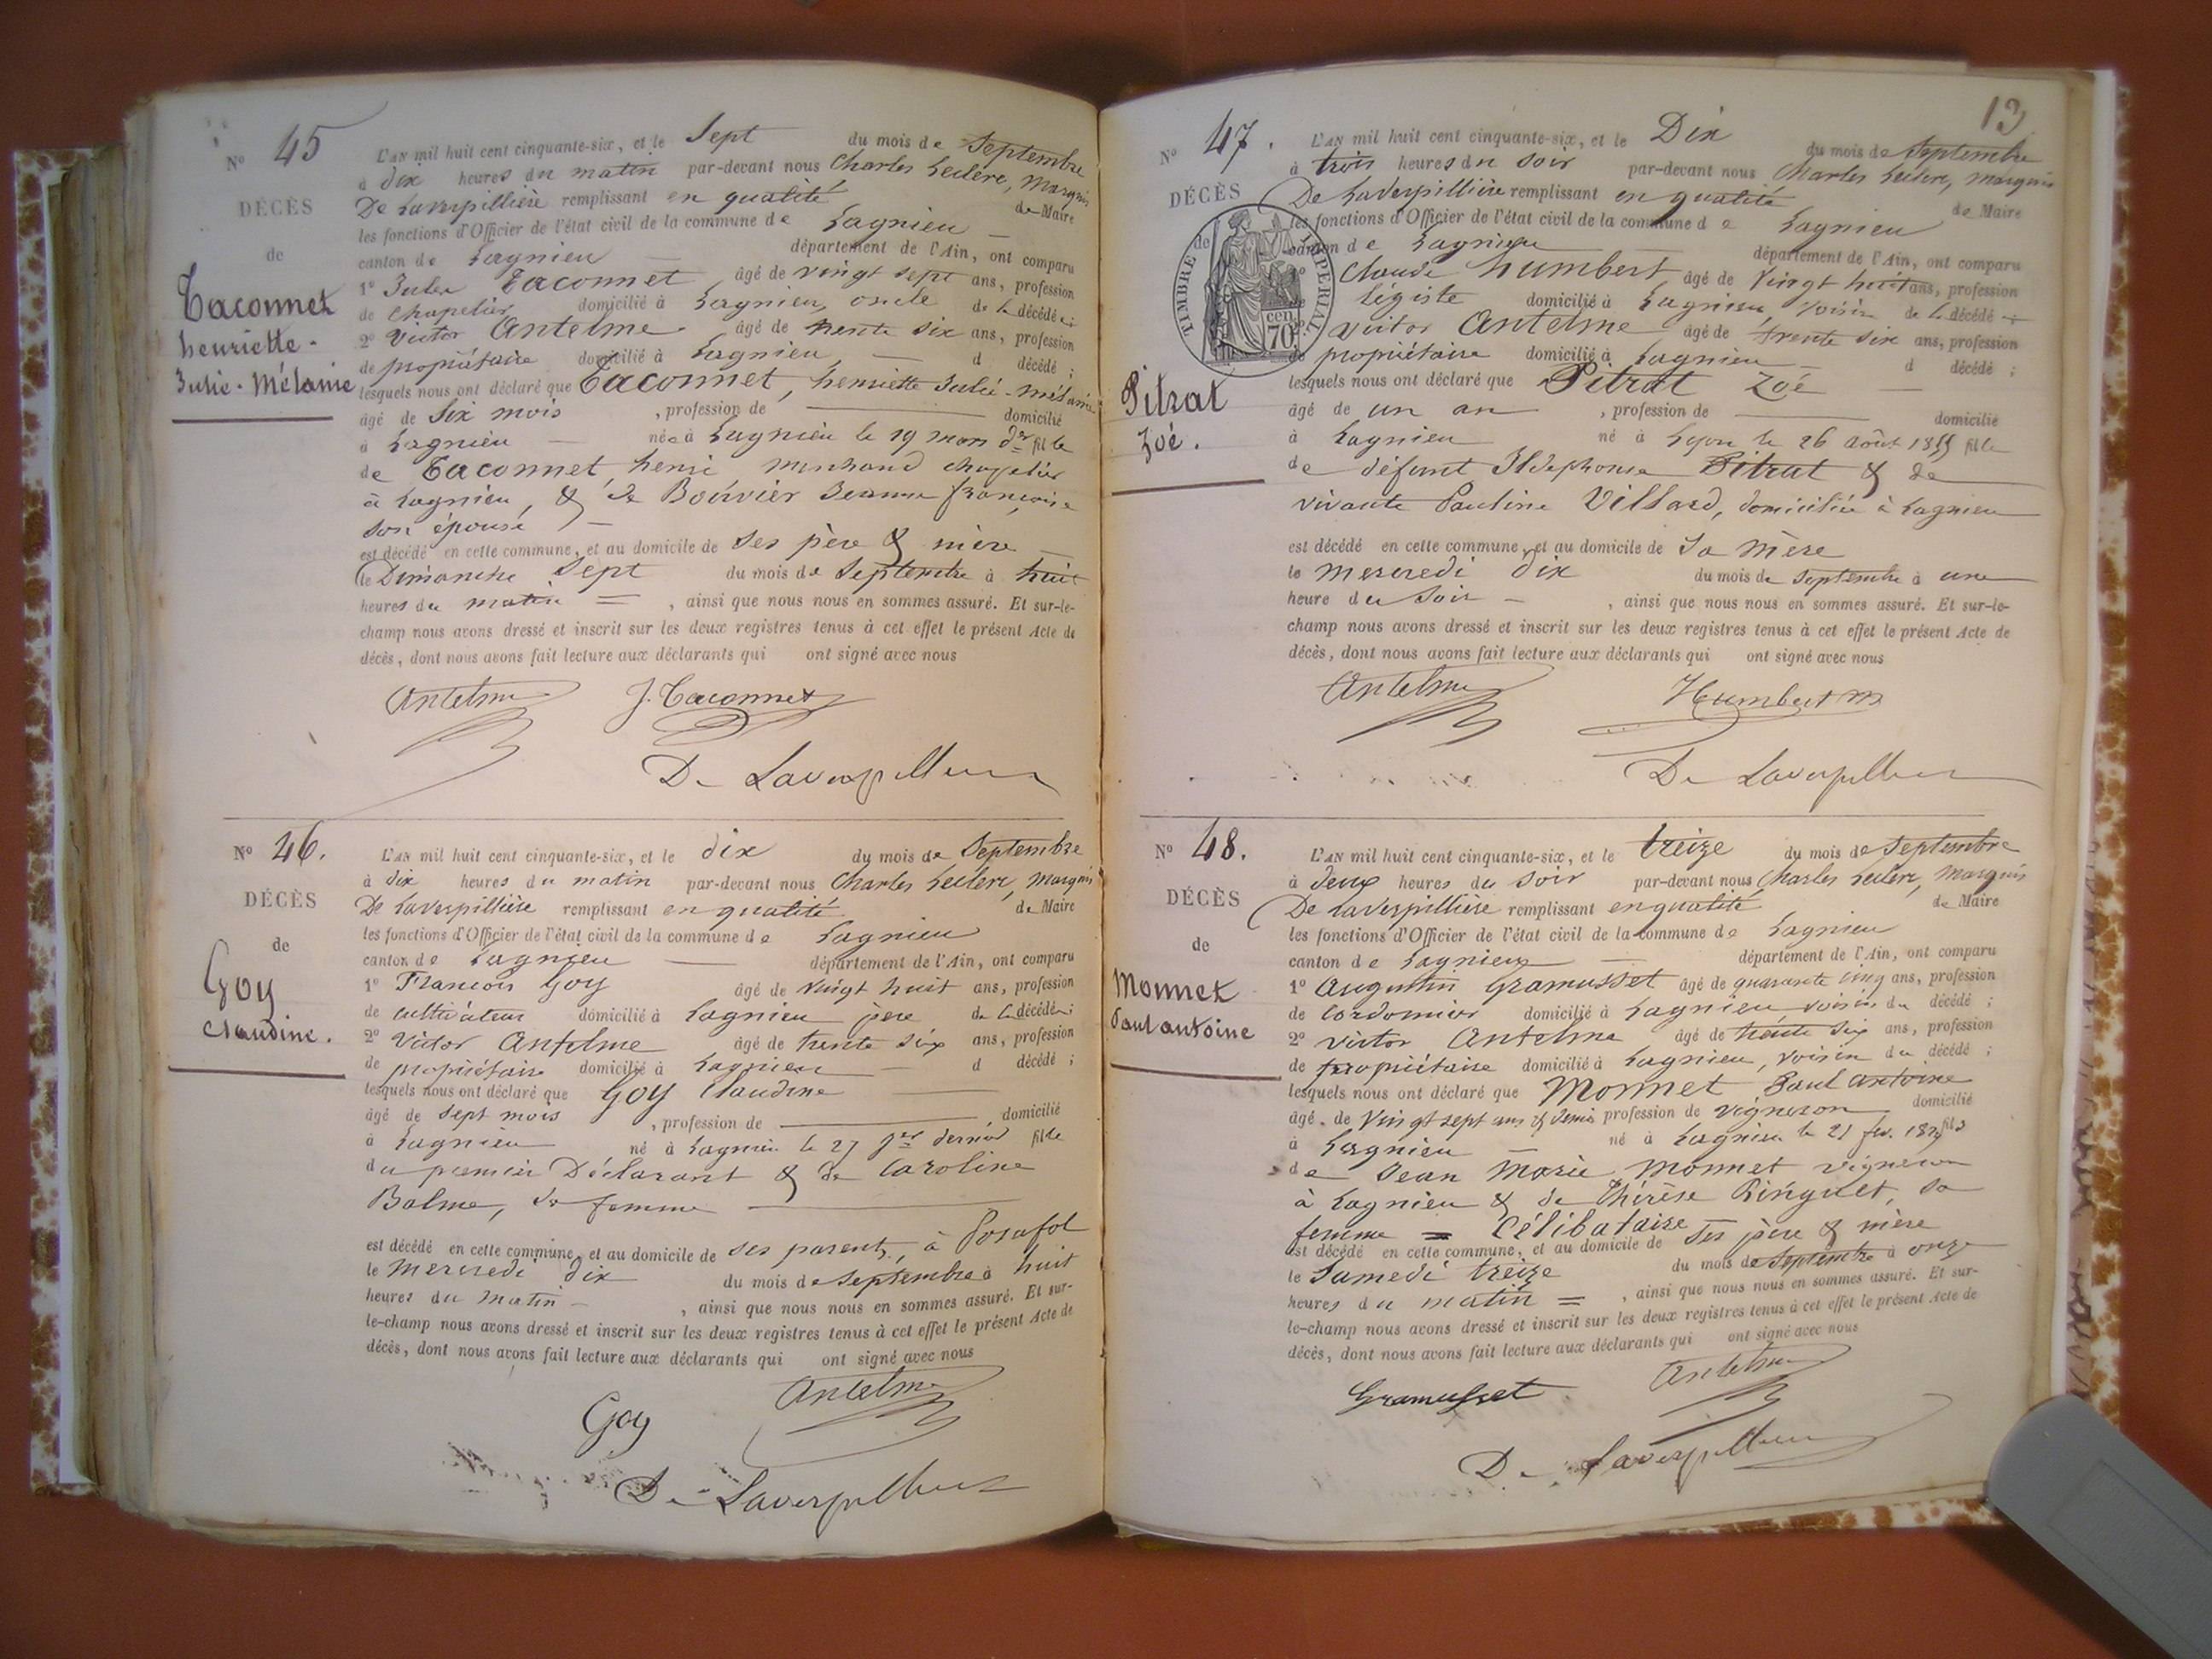 Nº 45
DÉCÈS
de
Taconnet
henriette-
Julie-Mélanie
L'AN mil huit cent cinquante-six, et le Sept du mois de Septembre
à dix heures du matin par-devant nous Charles Leclerc, Marquis
De Laverpillière remplissant en qualité de Maire
les fonctions d'Officier de l'état civil de la commune de Lagnieu
canton de Lagnieu département de l'Ain, ont comparu
1º Jules Taconnet âgé de vingt sept ans, profession
de chapelier domicilié à Lagnieu, oncle de la décédée;
2º Victor Antelme âgé de trente six ans, profession
de propriétaire domicilié à Lagnieu d décédé;
lesquels nous ont déclaré que Taconnet, henriette Julie-mélanie
âgé de Six mois, profession de domicilié
à Lagnieu née à Lagnieu le 19 mars der fille
de Taconnet henri marchand chapelier
à Lagnieu, & de Bouvier Jeanne françoise
son épouse
est décédé en cette commune, et au domicile de ses père & mère
le Dimanche Sept du mois de Septembre à huit
heures du matin =, ainsi que nous nous en sommes assuré. Et sur-le-
champ nous avons dressé et inscrit sur les deux registres tenus à cet effet le présent Acte de
décès, dont nous avons fait lecture aux déclarants qui ont signé avec nous
Antelme J. Taconnet
De Laverpilliere
Nº 46.
DÉCÈS
de
Goy
Claudine.
L'AN mil huit cent cinquante-six, et le dix du mois de Septembre
à dix heures du matin par-devant nous Charles Leclerc, Marquis
De Laverpillière remplissant en qualité de Maire
les fonctions d'Officier de l'état civil de la commune de Lagnieu
canton de Lagnieu département de l'Ain, ont comparu
1º Francois Goy âgé de Vingt huit ans, profession
de cultivateur domicilié à Lagnieu père de la décédée;
2º Victor Antelme âgé de trente six ans, profession
de propriétaire domicilié à Lagnieu d décédé;
lesquels nous ont déclaré que Goy Claudine
âgé de sept mois, profession de domicilié
à Lagnieu né à Lagnieu le 27 dernier fille
du premier Déclarant & de Caroline
Balme, sa femme
est décédé en cette commune, et au domicile de ses parents, à Posafol
le Mercredi dix du mois de septembre à huit
heures du matin -, ainsi que nous nous en sommes assuré. Et sur-
le-champ nous avons dressé et inscrit sur les deux registres tenus à cet effet le présent Acte de
décès, dont nous avons fait lecture aux déclarants qui ont signé avec nous
Goy Antelme
De Laverpilliere
13
Nº 47.
DÉCÈS
de
TIMBRE IMPÉRIAL
cen. 70
Pitrat
Zoé.
L'AN mil huit cent cinquante-six, et le Dix du mois de Septembre
à trois heures du soir par-devant nous Charles Leclerc, marquis
De Laverpillière remplissant en qualité de Maire
les fonctions d'Officier de l'état civil de la commune de Lagnieu
canton de Lagnieu département de l'Ain, ont comparu
1º Claude humbert âgé de Vingt huit ans, profession
de légiste domicilié à Lagnieu, voisin de la décédé
2º Victor Antelme âgé de trente six ans, profession
de propriétaire domicilié à Lagnieu d décédé;
lesquels nous ont déclaré que Pitrat Zoé
âgé de un an, profession de domicilié
à Lagnieu né à Lyon le 26 août 1855 fille
de défunt Ildephonse Pitrat & de
vivante Pauline Villard, domiciliée à Lagnieu
est décédé en cette commune, et au domicile de Sa mère
le Mercredi dix du mois de septembre à une
heure du soir -, ainsi que nous nous en sommes assuré. Et sur-le-
champ nous avons dressé et inscrit sur les deux registres tenus à cet effet le présent Acte de
décès, dont nous avons fait lecture aux déclarants qui ont signé avec nous
Antelme Humbert
De Laverpilliere
Nº 48.
DÉCÈS
de
Monnet
Paul antoine
L'AN mil huit cent cinquante-six, et le treize du mois de Septembre
à deux heures du soir par-devant nous Charles Leclerc, Marquis
De Laverpillière remplissant en qualité de Maire
les fonctions d'Officier de l'état civil de la commune de Lagnieu
canton de Lagnieu département de l'Ain, ont comparu
1º Augustin Gramusset âgé de quarante cinq ans, profession
de Cordonnier domicilié à Lagnieu voisin du décédé;
2º Victor Antelme âgé de trente six ans, profession
de propriétaire domicilié à Lagnieu, voisin du décédé;
lesquels nous ont déclaré que Monnet Paul antoine
âgé de Vingt sept ans & demi profession de vigneron domicilié
à Lagnieu né à Lagnieu le 21 fev. fils
de Jean Marie Monnet vigneron
à Lagnieu & de Thérèse Ringuet, sa
femme = Célibataire
est décédé en cette commune, et au domicile de ses père & mère
le Samedi treize du mois de Septembre à onze
heures du matin =, ainsi que nous nous en sommes assuré. Et sur-
le-champ nous avons dressé et inscrit sur les deux registres tenus à cet effet le présent Acte de
décès, dont nous avons fait lecture aux déclarants qui ont signé avec nous
Gramusset Antelme
De Laverpilliere